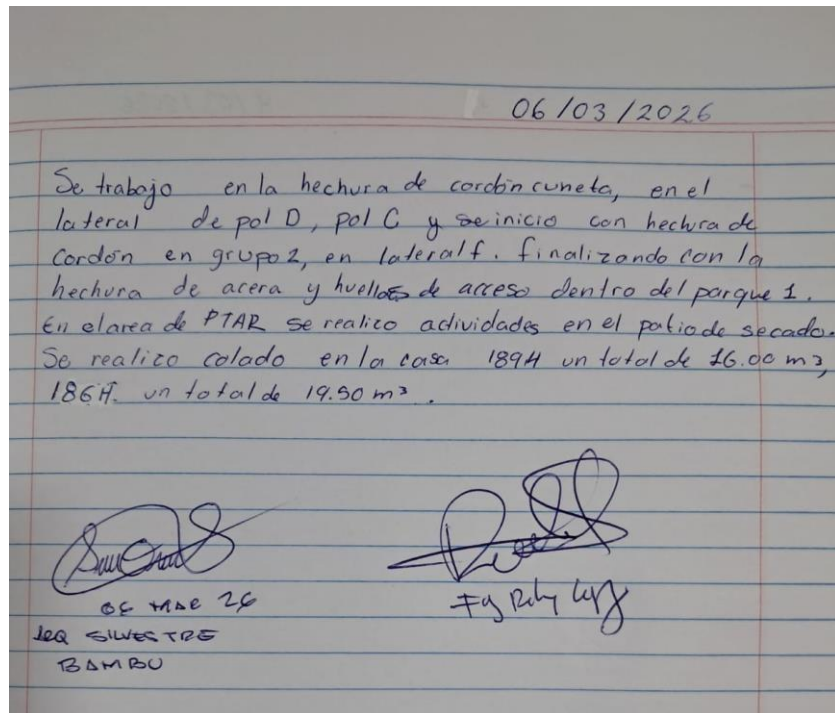 06/03/2026
Se trabajo en la hechura de cordón cuneta, en el
lateral de pol D, pol C y se inicio con hechura de
Cordón en grupo 2, en lateral f. finalizando con la
hechura de acera y huellas de acceso dentro del parque 1.
En el area de PTAR se realizo actividades en el patio de secado.
Se realizo colado en la casa 189H un total de 16.00 m3,
186H. un total de 19.50 m3.
06 MAR 26
SILVESTRE
BAMBU